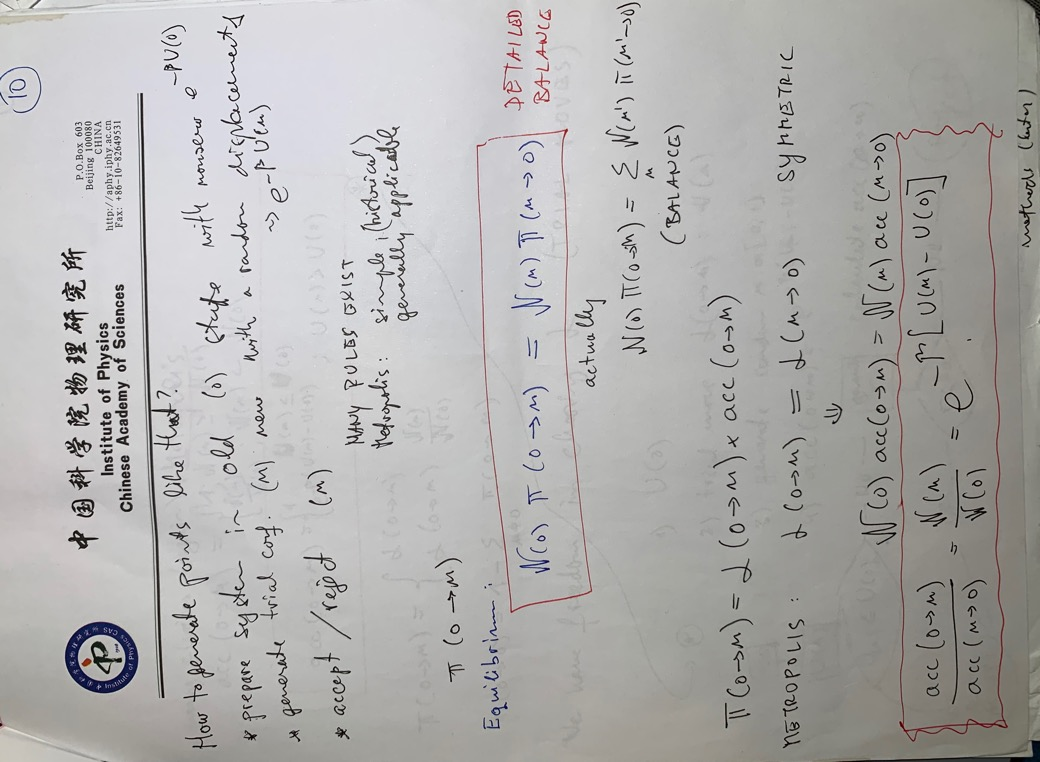 10
中国科学院物理研究所
Institute of Physics
Chinese Academy of Sciences
P.O.Box 603
Beijing 100080
CHINA
http://aphy.iphy.ac.cn
Fax: +86-10-82649531
How to generate points like that?
* prepare system in old (o) state with nonzero e^-βU(o)
* generate trial conf. (n) new with a random displacement
→ e^-βU(n)
* accept / reject (n)
MANY RULES EXIST
Metropolis: simple; (historical)
generally applicable
π (o→n)
Equilibrium:
N(o) π (o→n) = N(n) π (n→o)
DETAILED
BALANCE
actually
N(o) π(o→n) = Σ_n' N(n') π(n'→o)
(BALANCE)
π(o→n) = α (o→n) × acc (o→n)
METROPOLIS: α (o→n) = α (n→o) SYMMETRIC
⇓
N(o) acc(o→n) = N(n) acc (n→o)
acc (o→n) / acc (n→o) = N(n) / N(o) = e^-β[U(n) - U(o)].
methods (later)